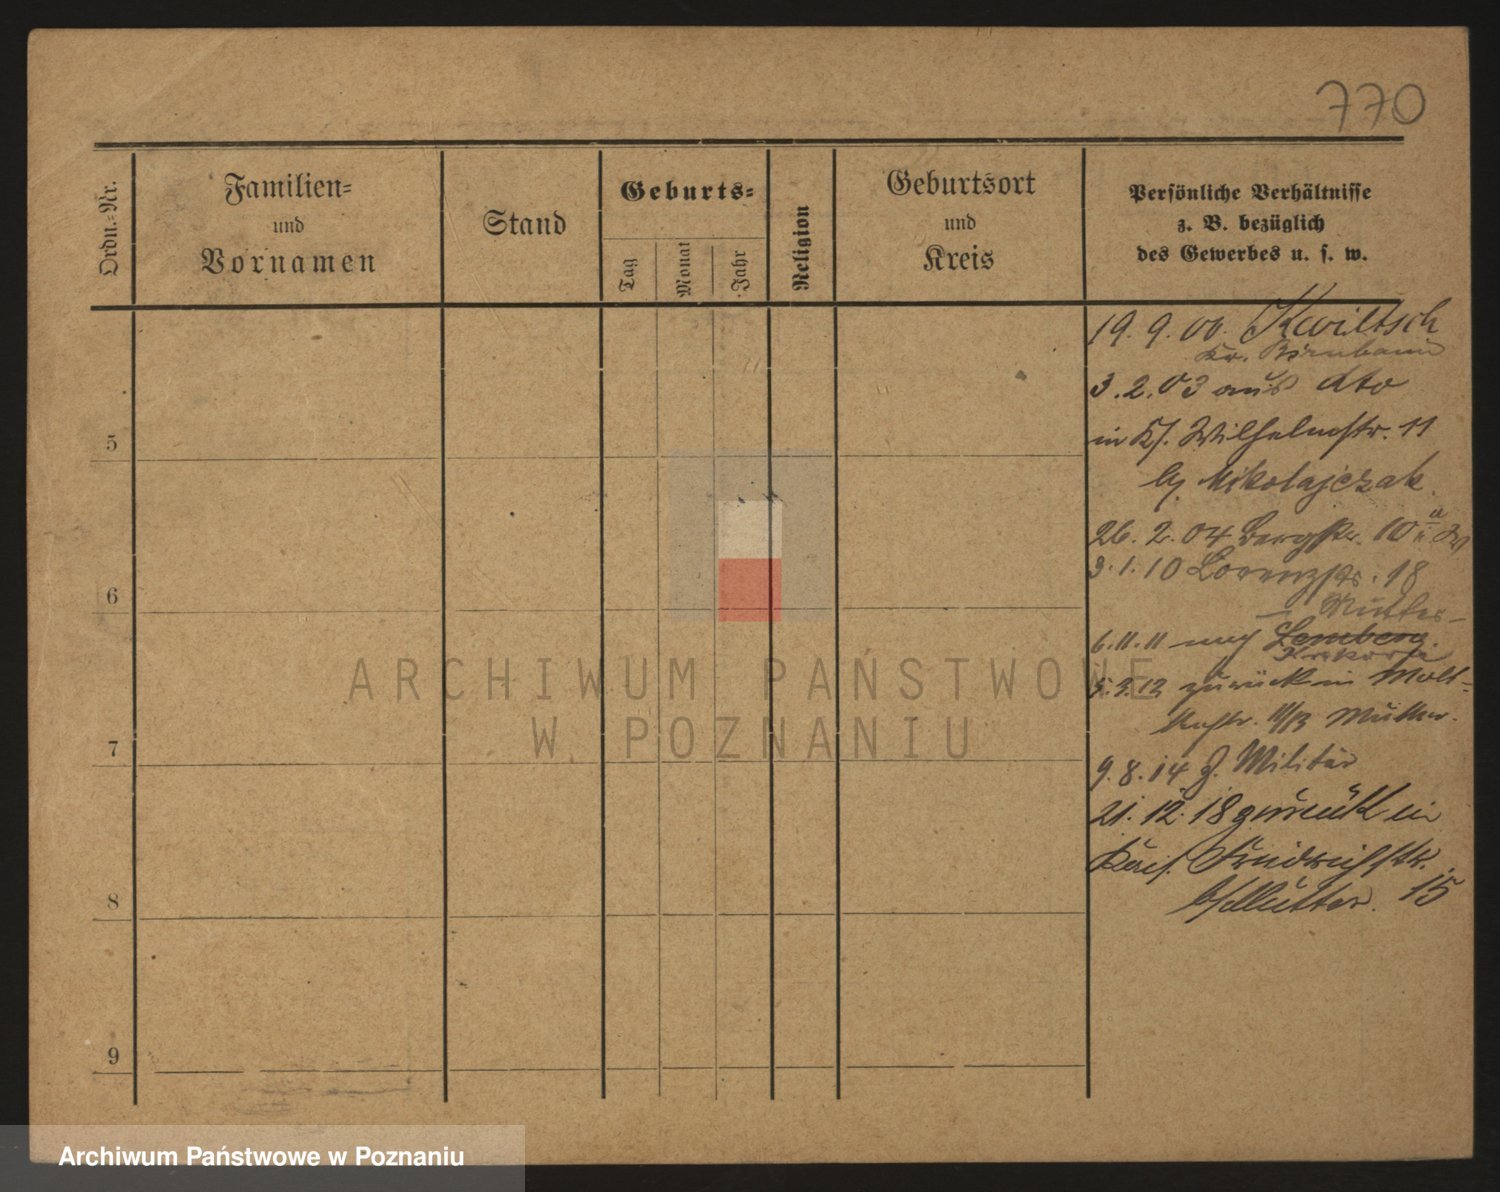 770
Ordn.-Nr.
Familien-
und
Vornamen
Stand
Geburts-
Tag
Monat
Jahr
Religion
Geburtsort
und
Kreis
Persönliche Verhältnisse
z. B. bezüglich
des Gewerbes u. s. w.
19. 9. 00. Kwiltsch
Kr. Birnbaum
3. 2. 03 aus dto
5
in Wilhelmstr. 11
b/ Mikolajczak
26. 2. 04 Bergstr. 10
3. 1. 10 Lorenzstr. 18
6
Mutter
6. 11. 11 nach Lemberg.
5. 2. 12 zurück in Molt-
kestr. Mutter.
7
9. 8. 14 z. Militär
21. 12. 18 zurück in
Friedrichstr.
8
b/ Mutter. 15
9
ARCHIWUM PAŃSTWOWE
W POZNANIU
Archiwum Państwowe w Poznaniu